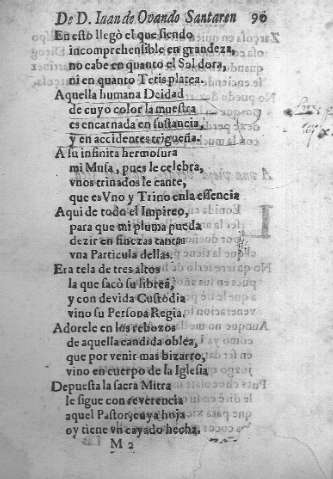 De D. Iuan de Ovando Santaren 90
En esto llegò el que siendo
incomprehensible en grandeza,
no cabe en quanto el Sol dora,
ni en quanto Tetis platea.
Aquella humana Deidad
de cuyo color la muestra
es encarnada en sustancia,
y en accidentes trigueña.
A su infinita hermosura
mi Musa, pues le celebra,
vnos trinados le cante,
que es Vno y Trino en la essencia
Aqui de todo el Impireo,
para que mi pluma pueda
dezir en finezas tantas
vna Particula dellas.
Era tela de tres altos
la que sacò su librea,
y con devida Custodia
vino su Persona Regia.
Adorele en los rebozos
de aquella candida oblea,
que por venir mas bizarro,
vino en cuerpo de la Iglesia
Depuesta la sacra Mitra
le sigue con reverencia
aquel Pastor, cuya hoja
oy tiene vn cayado hecha.
M 2